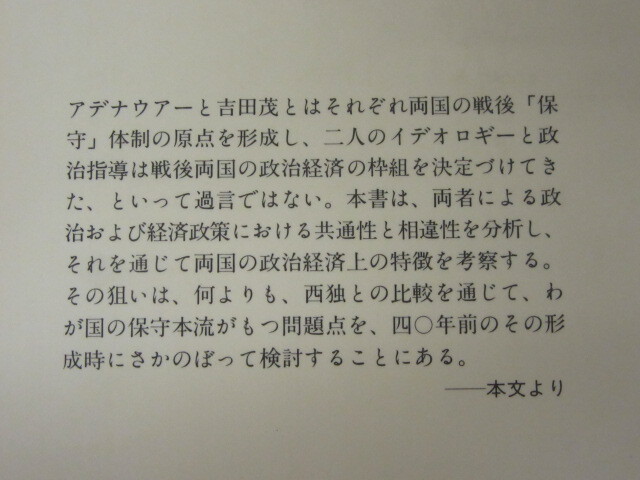 アデナウアーと吉田茂とはそれぞれ両国の戦後「保
守」体制の原点を形成し、二人のイデオロギーと政
治指導は戦後両国の政治経済の枠組を決定づけてき
た、といって過言ではない。本書は、両者による政
治および経済政策における共通性と相違性を分析し、
それを通じて両国の政治経済上の特徴を考察する。
その狙いは、何よりも、西独との比較を通じて、わ
が国の保守本流がもつ問題点を、四〇年前のその形
成時にさかのぼって検討することにある。
──本文より